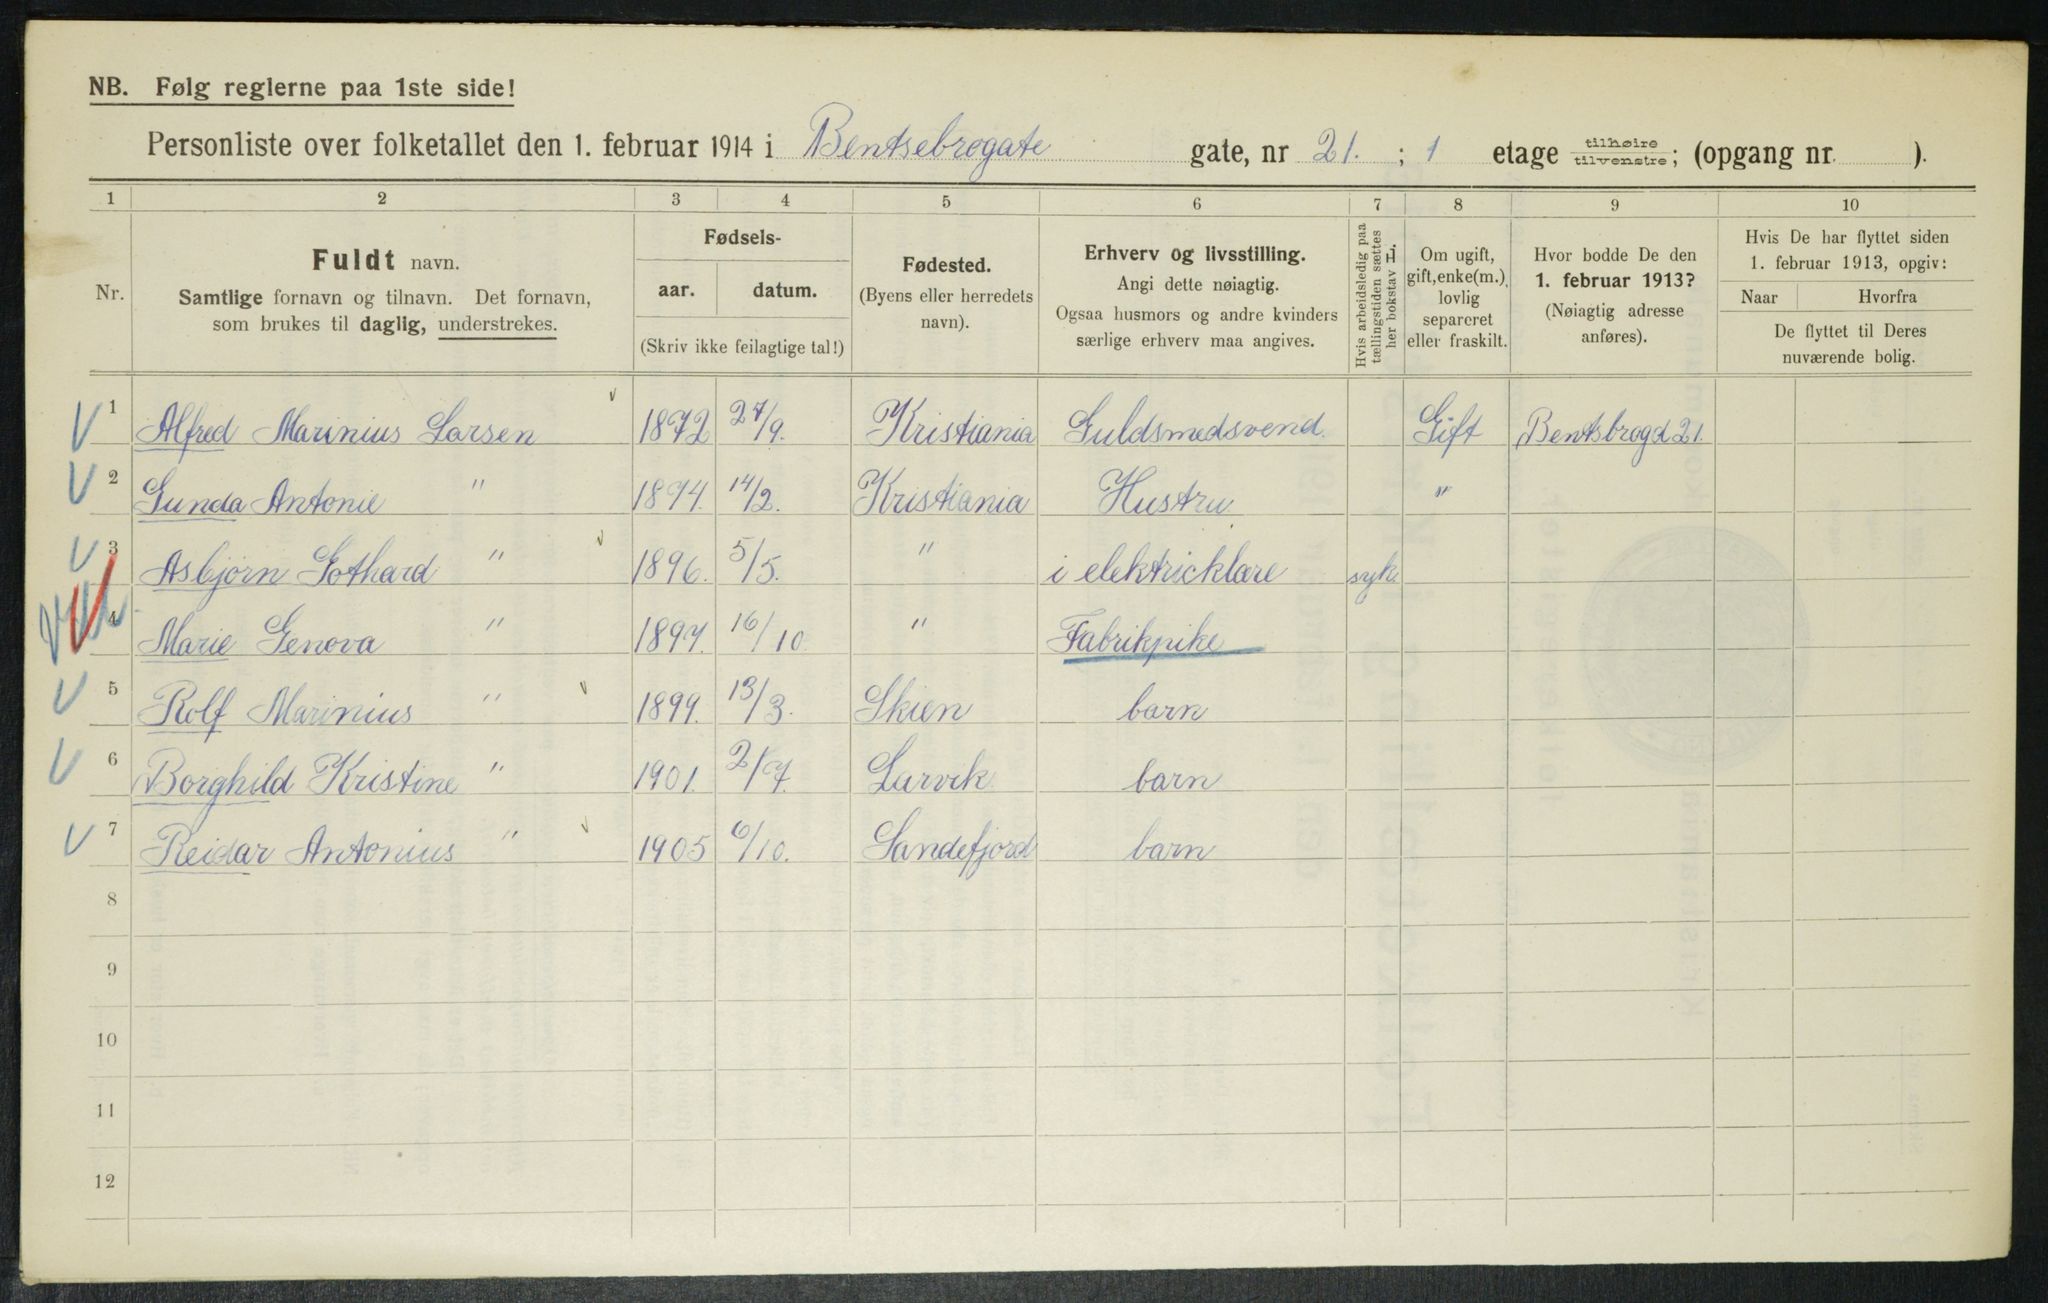 NB. Følg reglerne paa 1ste side!
Personliste over folketallet den 1. februar 1914 i Bentsebrogate gate, nr 21. ; 1 etage tilhøire tilvenstre; (opgang nr. ).
1 2 3 4 5 6 7 8 9 10
Nr.
Fuldt navn.
Samtlige fornavn og tilnavn. Det fornavn, som brukes til daglig, understrekes.
Fødsels-
aar. datum.
(Skriv ikke feilagtige tal!)
Fødested.
(Byens eller herredets navn).
Erhverv og livsstilling.
Angi dette nøiagtig.
Ogsaa husmors og andre kvinders særlige erhverv maa angives.
Hvis arbeidsledig paa tællingstiden sættes her bokstav L.
Om ugift, gift, enke(m.), lovlig separeret eller fraskilt.
Hvor bodde De den 1. februar 1913?
(Nøiagtig adresse anføres).
Hvis De har flyttet siden 1. februar 1913, opgiv:
Naar Hvorfra
De flyttet til Deres nuværende bolig.
1 Alfred Marinius Larsen 1872 27/9. Kristiania Guldsmedsvend. Gift Bentsbrogd 21.
2 Gunda Antonie " 1874. 14/2. Kristiania Hustru "
3 Asbjørn Gothard " 1896. 5/5. " i elektricklære syk.
4 Marie Genova " 1897. 16/10. " Fabrikpike
5 Rolf Marinius " 1899. 13/3. Skien barn
6 Borghild Kristine " 1901. 2/7. Larvik barn
7 Reidar Antonius " 1905 6/10. Sandefjord barn
8
9
10
11
12